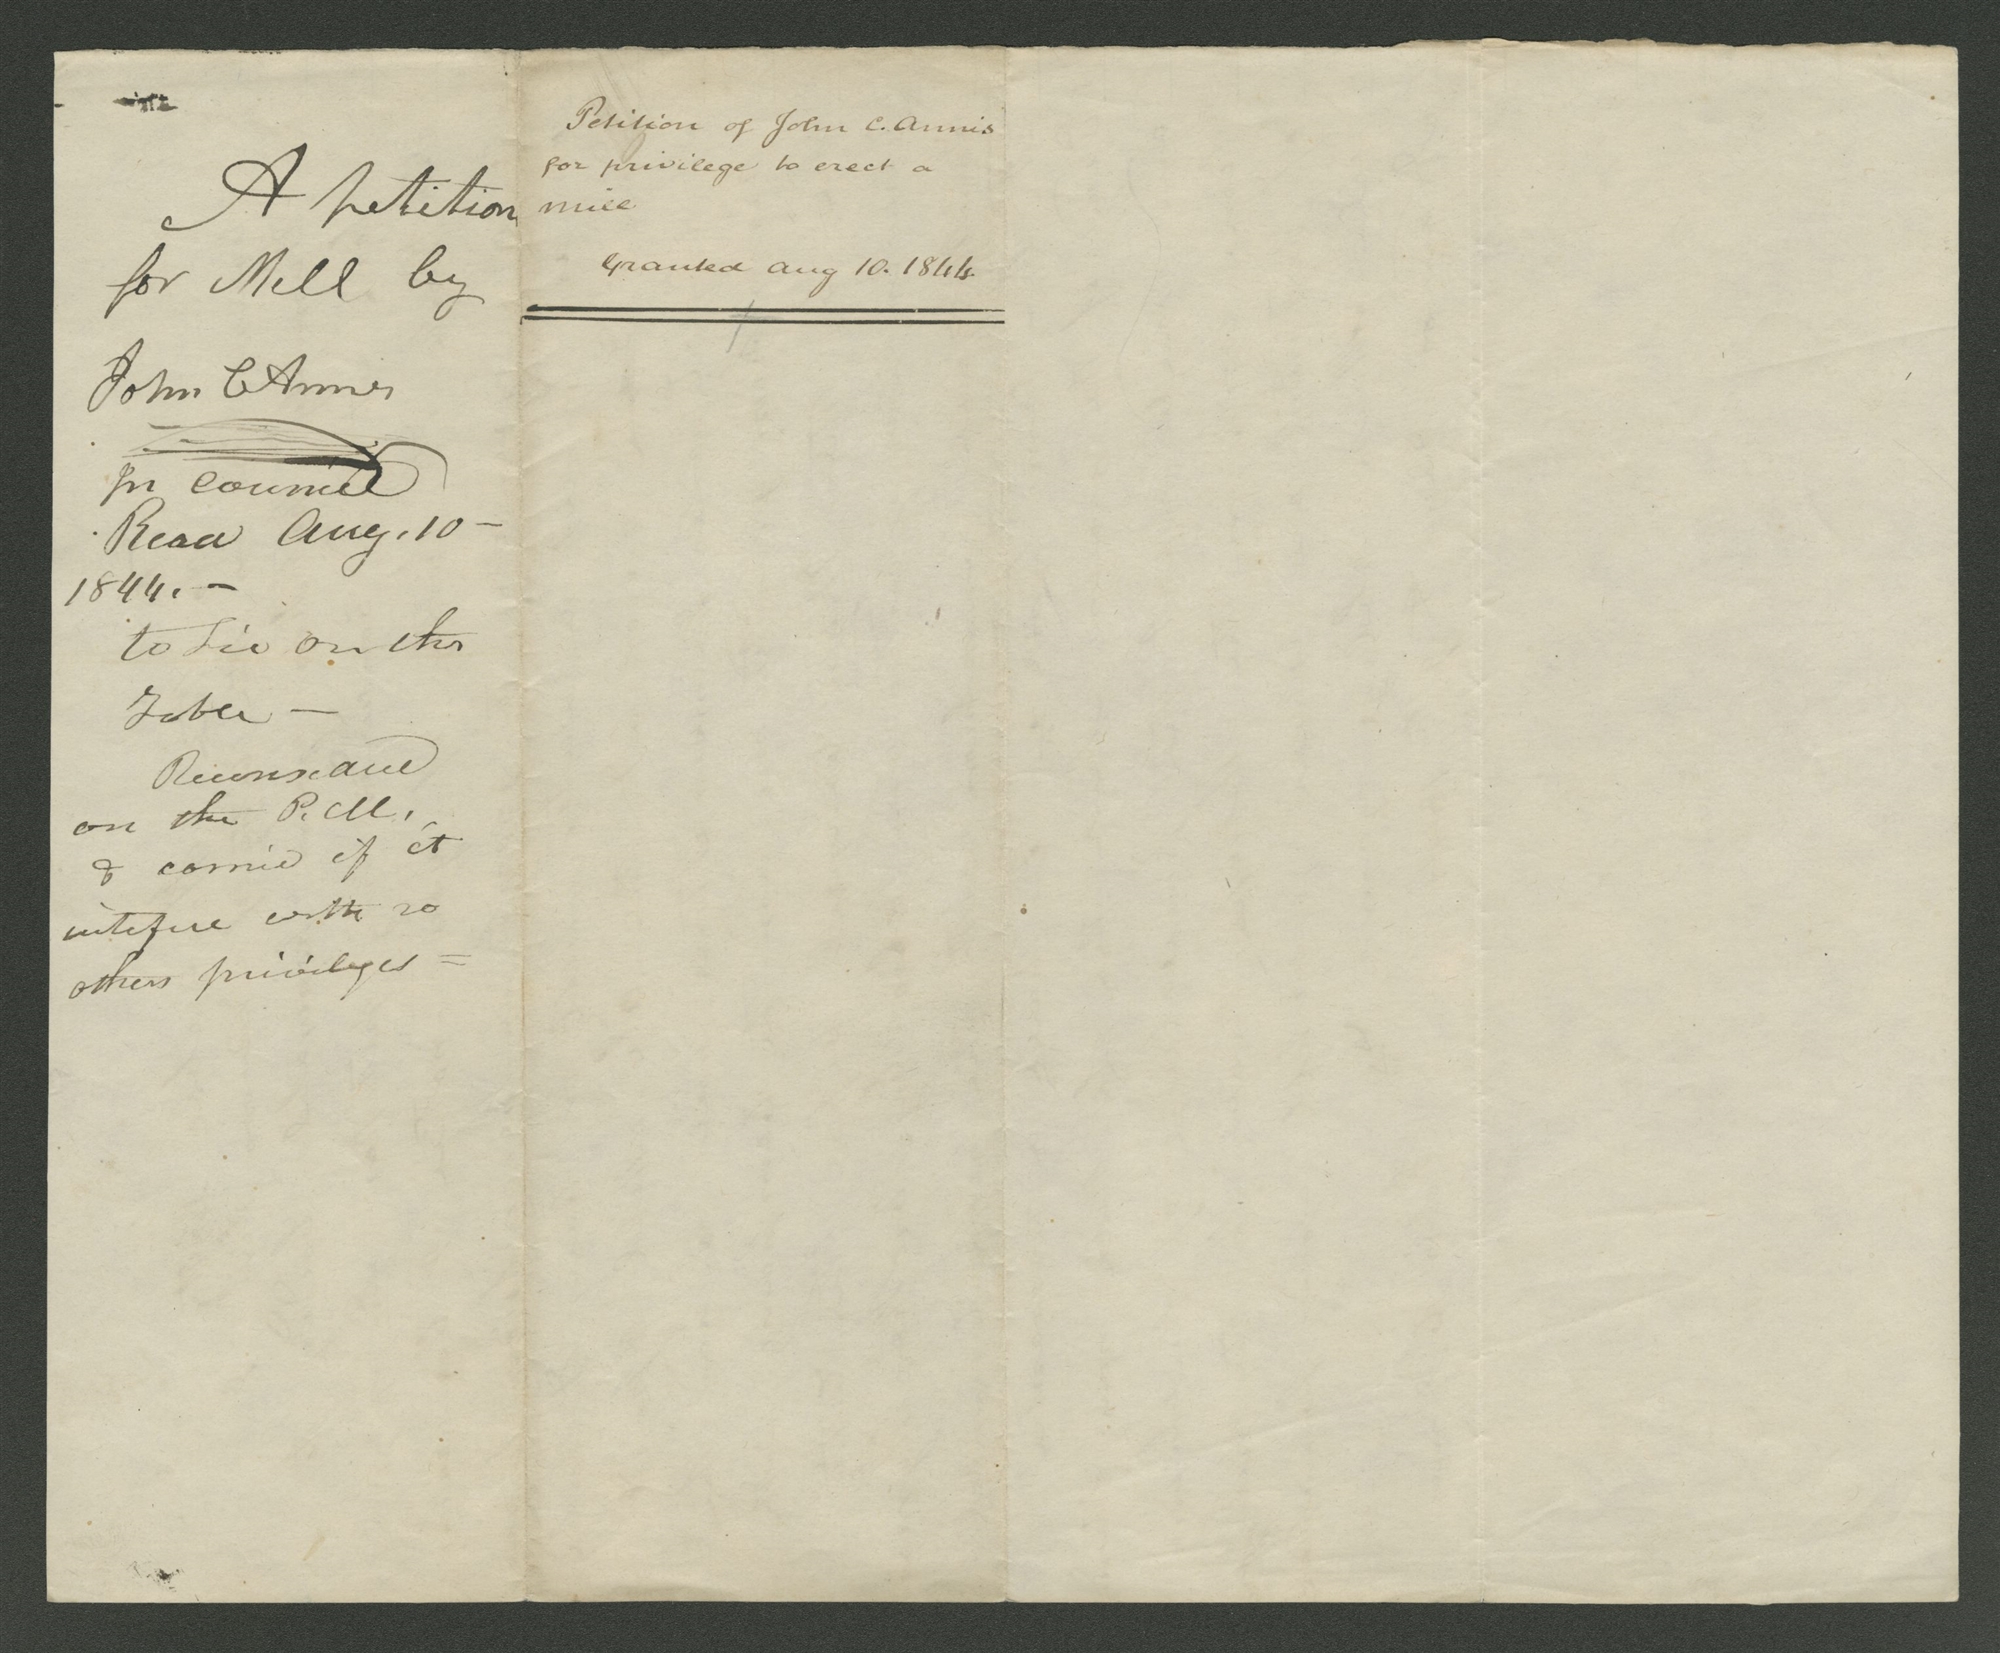 A petition
for Mill by
John C Annis
In council
Read Aug. 10 –
1844. –
to Lie on the
Table –
on the P. M.
& carried if it
intefere with no
others privileges =
Petition of John C. Annis
for privilege to erect a
mill
Granted Aug 10. 1844.